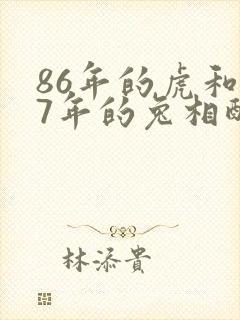 86年的虎和
7年的兔相
林添貴